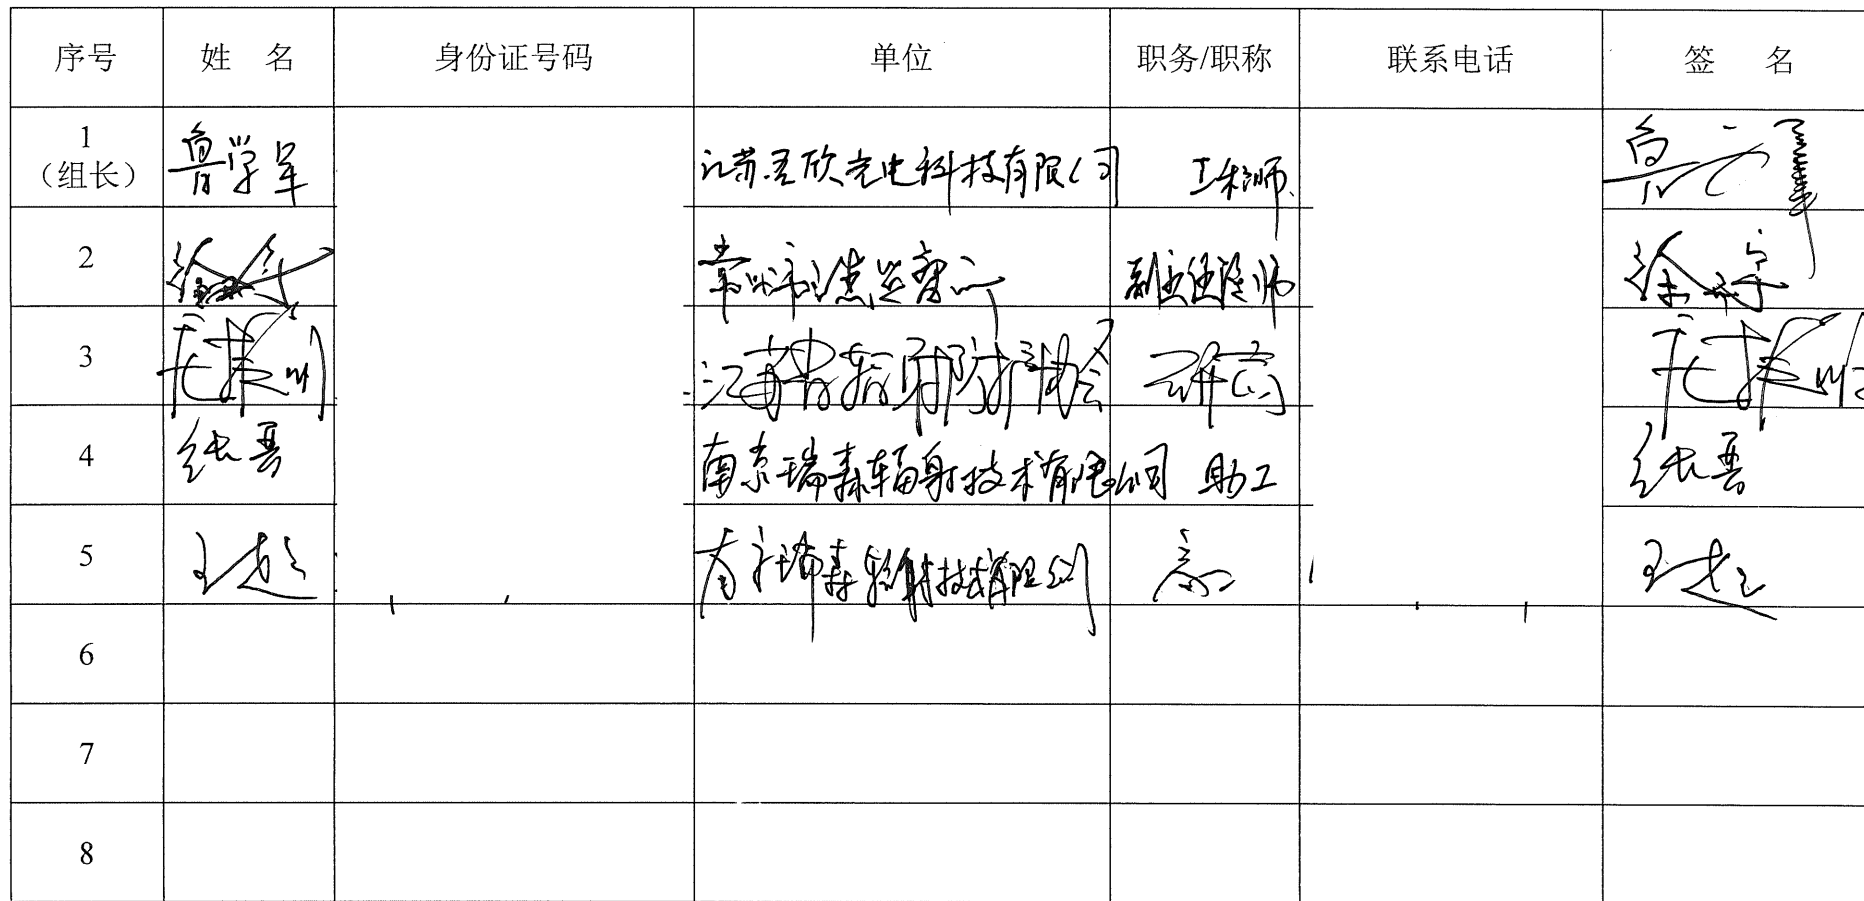 序号 姓 名 身份证号码 单位 职务/职称 联系电话 签 名
1
(组长) 鲁学军 江苏君欣光电科技有限公司 工程师 鲁学军
2 徐宁
3 江苏省辐射防护协会
4 张晋 南京瑞森辐射技术有限公司 助工 张晋
5 王超 南京瑞森辐射技术有限公司 高工 王超
6
7
8